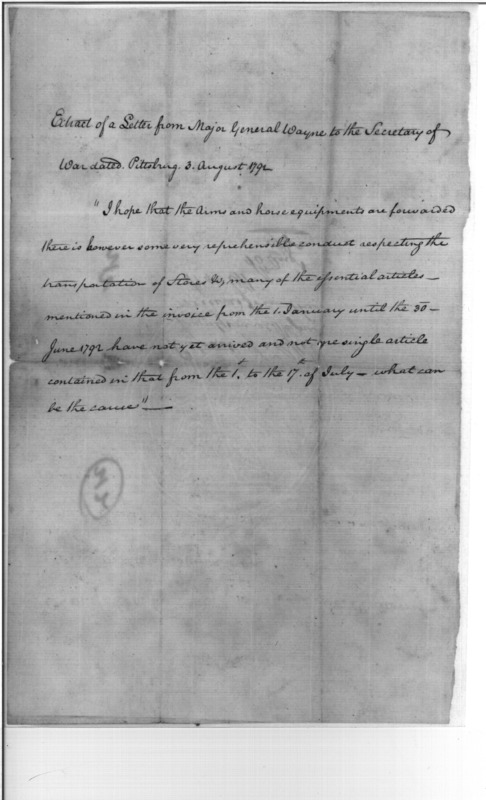 Extract of a Letter from Major General Wayne to the Secretary of
War dated. Pittsburg. 3. August 1792
"I hope that the Arms and horse equipments are forwarded
there is however some very reprehensible conduct respecting the
transportation of Stores &c, many of the essential articles —
mentioned in the invoice from the 1. January until the 30 —
June 1792 have not yet arrived and not one single article
contained in that from the 1st. to the 17th. of July — what can
be the cause" —